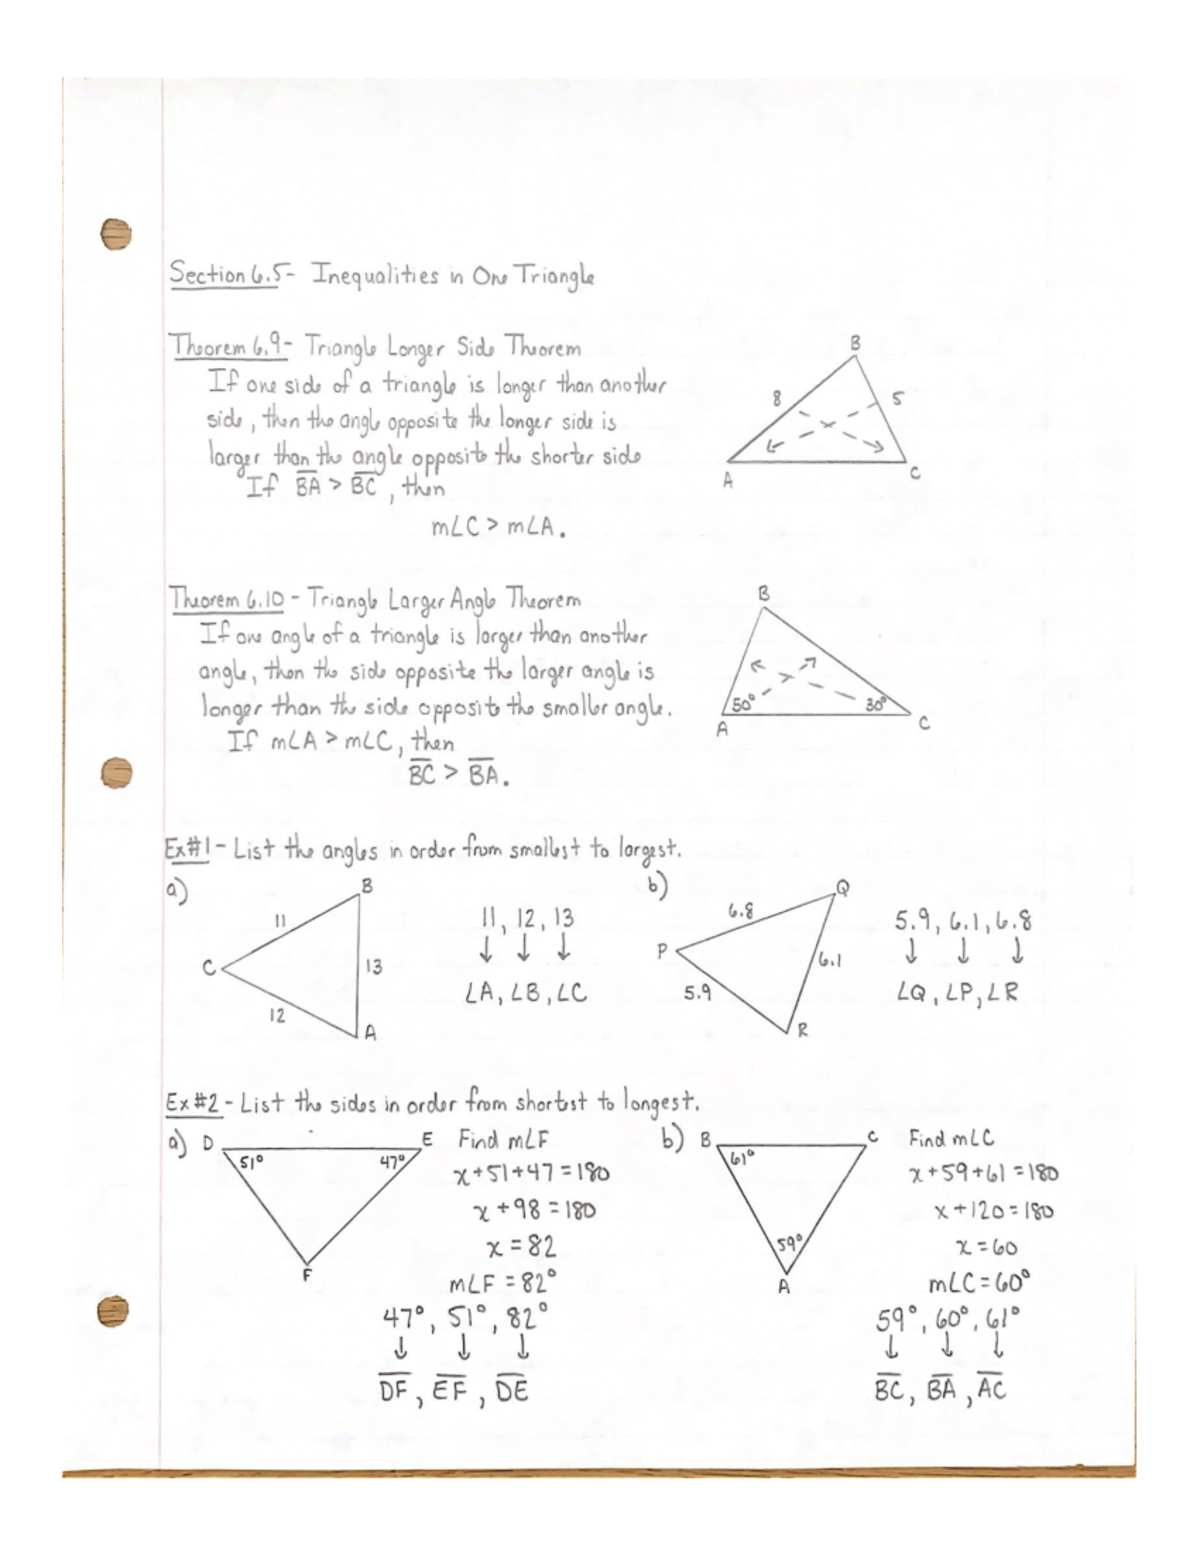 Section 6.5- Inequalities in One Triangle
Theorem 6.9- Triangle Longer Side Theorem
If one side of a triangle is longer than another
side, then the angle opposite the longer side is
larger than the angle opposite the shorter side
If B̅A̅ > B̅C̅, then
m∠C > m∠A.
B
8
5
A
C
Theorem 6.10 - Triangle Larger Angle Theorem
If one angle of a triangle is larger than another
angle, then the side opposite the larger angle is
longer than the side opposite the smaller angle.
If m∠A > m∠C, then
B̅C̅ > B̅A̅.
B
50°
30°
A
C
Ex#1 - List the angles in order from smallest to largest.
a)
B
11
C
13
12
A
11, 12, 13
↓ ↓ ↓
∠A, ∠B, ∠C
b)
Q
6.8
P
6.1
5.9
R
5.9, 6.1, 6.8
↓ ↓ ↓
∠Q, ∠P, ∠R
Ex#2 - List the sides in order from shortest to longest.
a) D
E
51°
47°
F
Find m∠F
x+51+47=180
x+98=180
x=82
m∠F=82°
47°, 51°, 82°
↓ ↓ ↓
D̅F̅, E̅F̅, D̅E̅
b) B
C
61°
59°
A
Find m∠C
x+59+61=180
x+120=180
x=60
m∠C=60°
59°, 60°, 61°
↓ ↓ ↓
B̅C̅, B̅A̅, A̅C̅